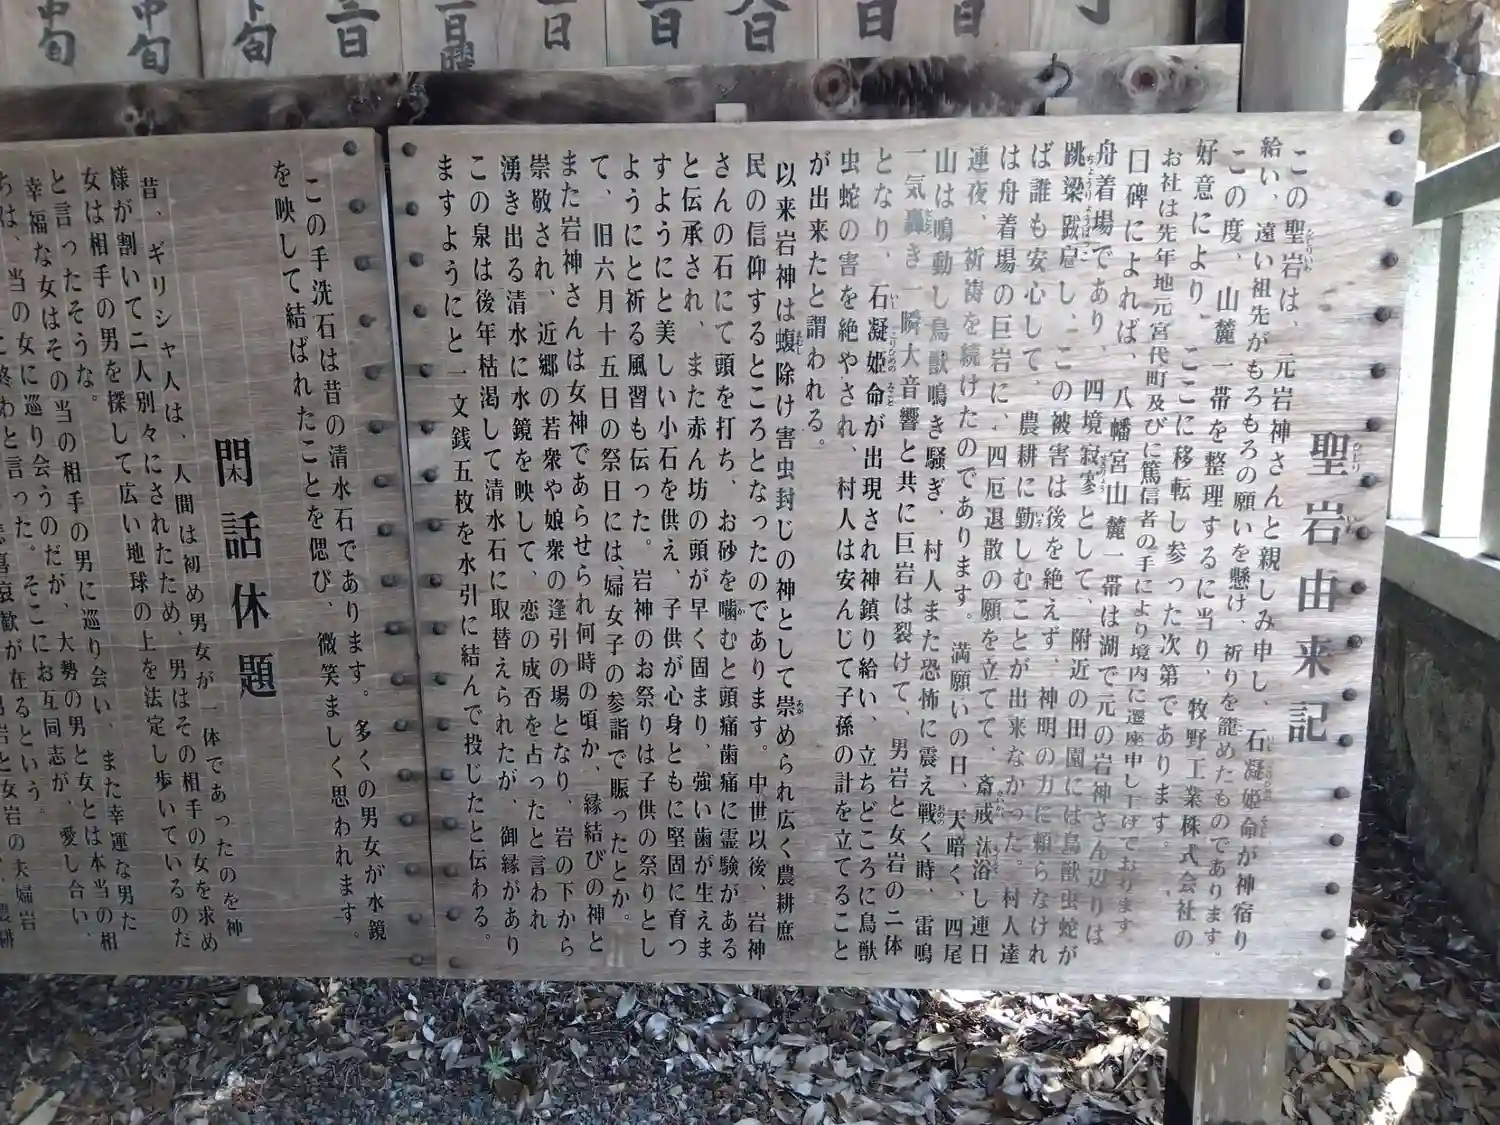 中旬
中旬
下旬
二日
一日曜
一日
一日
八日
日
日
聖岩由来記
この聖岩は、元岩神さんと親しみ申し、石凝姫命が神宿り
給い、遠い祖先がもろもろの願いを懸け、祈りを籠めたものであります。
この度、山麓一帯を整理するに当り、牧野工業株式会社の
好意により、ここに移転し参った次第であります。
お社は先年地元宮代町及びに篤信者の手により境内に遷座申し上げております
口碑によれば、八幡宮山麓一帯は湖で元の岩神さん辺りは
舟着場であり、四境寂寥として、附近の田園には鳥獣虫蛇が
跳梁跋扈し、この被害は後を絶えず、神明の力に頼らなけれ
ば誰も安心して、農耕に勤しむことが出来なかった。村人達
は舟着場の巨岩に、四厄退散の願を立てて、斎戒沐浴し連日
連夜、祈祷を続けたのであります。満願いの日、天暗く、四尾
山は鳴動し鳥獣鳴き騒ぎ、村人また恐怖に震え戦く時、雷鳴
一気轟き一瞬大音響と共に巨岩は裂けて、男岩と女岩の二体
となり、石凝姫命が出現され神鎮り給い、立ちどころに鳥獣
虫蛇の害を絶やされ、村人は安んじて子孫の計を立てること
が出来たと謂われる。
以来岩神は蝮除け害虫封じの神として崇められ広く農耕庶
民の信仰するところとなったのであります。中世以後、岩神
さんの石にて頭を打ち、お砂を噛むと頭痛歯痛に霊験がある
と伝承され、また赤ん坊の頭が早く固まり、強い歯が生えま
すようにと美しい小石を供え、子供が心身ともに堅固に育つ
ようにと祈る風習も伝った。岩神のお祭りは子供の祭りとし
て、旧六月十五日の祭日には、婦女子の参詣で賑ったとか。
また岩神さんは女神であらせられ何時の頃か、縁結びの神と
崇敬され、近郷の若衆や娘衆の逢引の場となり、岩の下から
湧き出る清水に水鏡を映して、恋の成否を占ったと言われ
この泉は後年枯渇して清水石に取替えられたが、御縁があり
ますようにと一文銭五枚を水引に結んで投じたと伝わる。
この手洗石は昔の清水石であります。多くの男女が水鏡
を映して結ばれたことを偲び、微笑ましく思われます。
閑話休題
昔、ギリシャ人は、人間は初め男女が一体であったのを神
様が割いて二人別々にされたため、男はその相手の女を求め
女は相手の男を探して広い地球の上を法定し歩いているのだ
と言ったそうな。
幸福な女はその当の相手の男に巡り会い、また幸運な男た
ちは、当の女に巡り会うのだが、大勢の男と女とは本当の相
と言った。そこにお互同志が、愛し合い、
喜哀歓が在るという。
男岩と女岩の夫婦岩
農耕